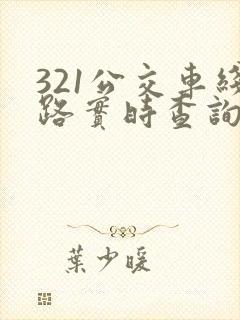 321公交車綫
路實時查詢
葉少暖